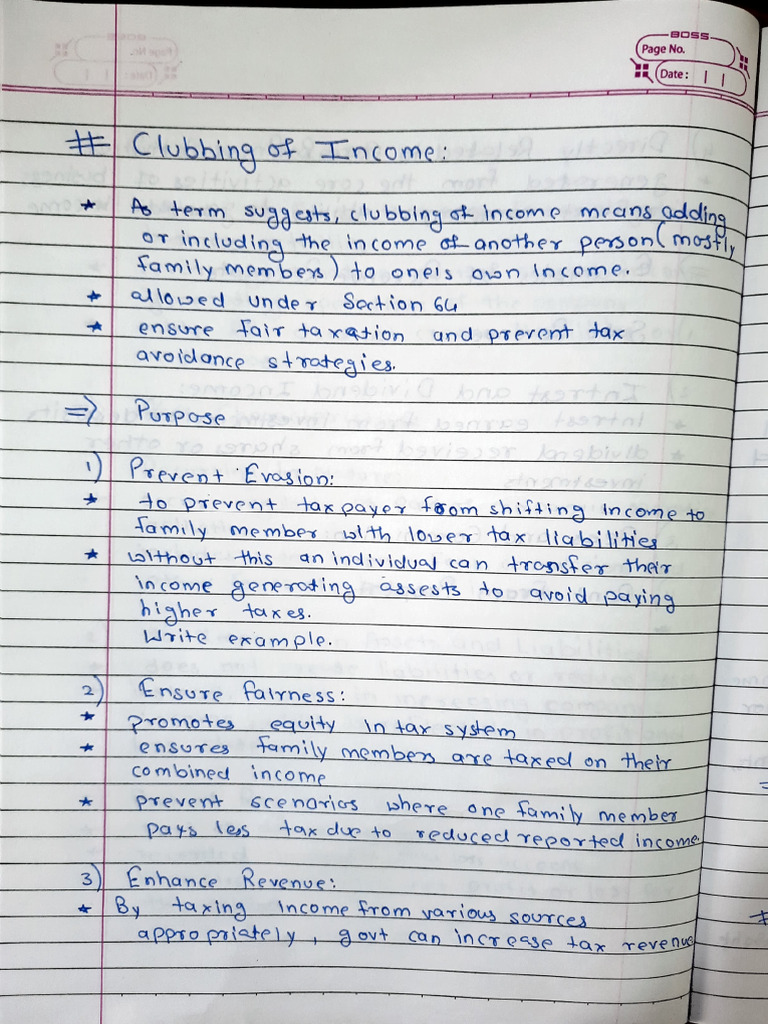 BOSS
Page No.
Date: | |
# Clubbing of Income:
* As term suggests, clubbing of income means adding
or including the income of another person (mostly
family members) to one's own Income.
* allowed under Section 64
* ensure fair taxation and prevent tax
avoidance strategies.
=> Purpose
1) Prevent Evasion:
* to prevent taxpayer from shifting Income to
family member with lower tax liabilities
* without this an individual can transfer their
income generating assests to avoid paying
higher taxes.
Write example.
2) Ensure Fairness:
* promotes equity in tax system
* ensures family members are taxed on their
combined income
* prevent scenarios where one family member
pays less tax due to reduced reported income.
3) Enhance Revenue:
* By taxing Income from various sources
appropriately, govt can increase tax revenue